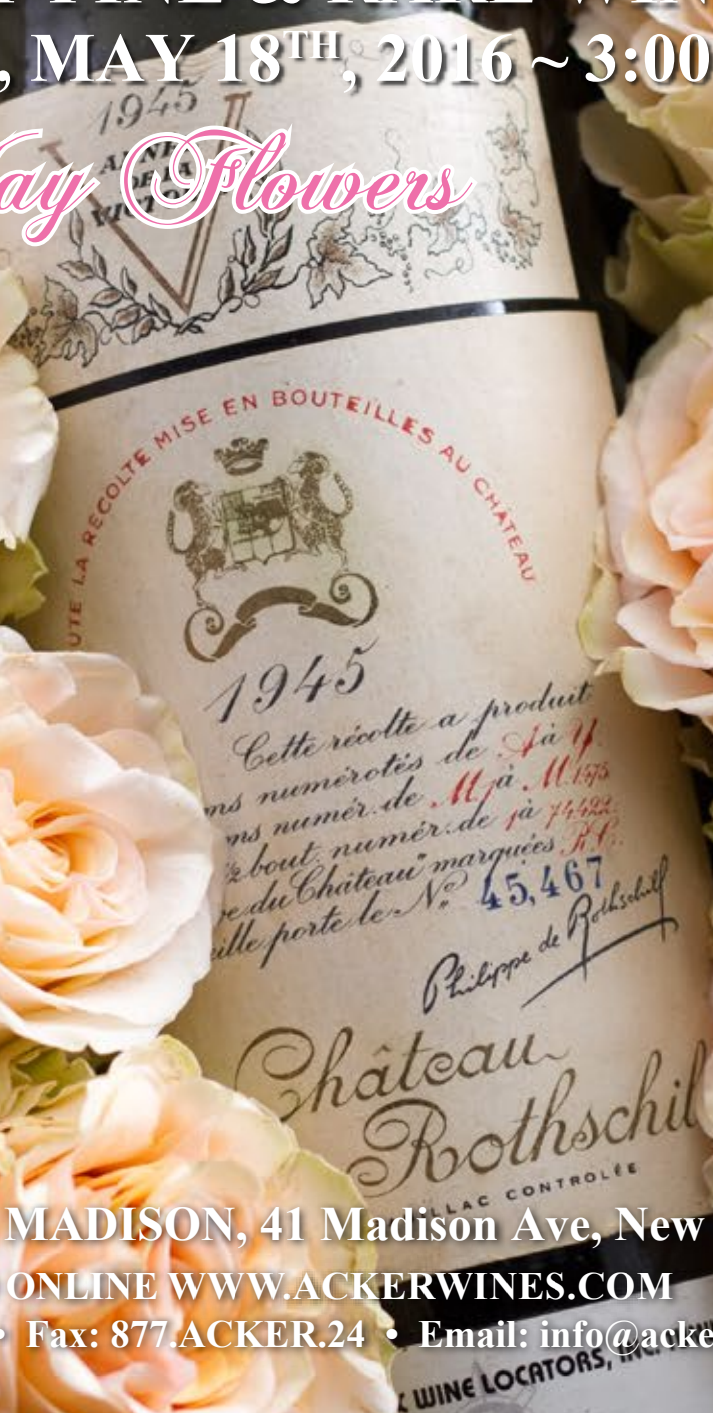 FINE & RARE WIN
, MAY 18TH, 2016 ~ 3:00
1945
V
ANNÉE
DE LA
VICTOIRE
ay Flowers
UTE LA RÉCOLTE MISE EN BOUTEILLES AU CHATEAU
1945
Cette récolte a produit
ns numérotés de A à Y.
ns numér. de M1 à M.1475
½ bout. numér. de 1 à 74422.
ve du Château" marquées R.C.
ille porte le No. 45,467
Philippe de Rothschild
Château
Rothschil
LLAC CONTROLÉE
MADISON, 41 Madison Ave, New
ONLINE WWW.ACKERWINES.COM
• Fax: 877.ACKER.24 • Email: info@acke
K WINE LOCATORS, INC.